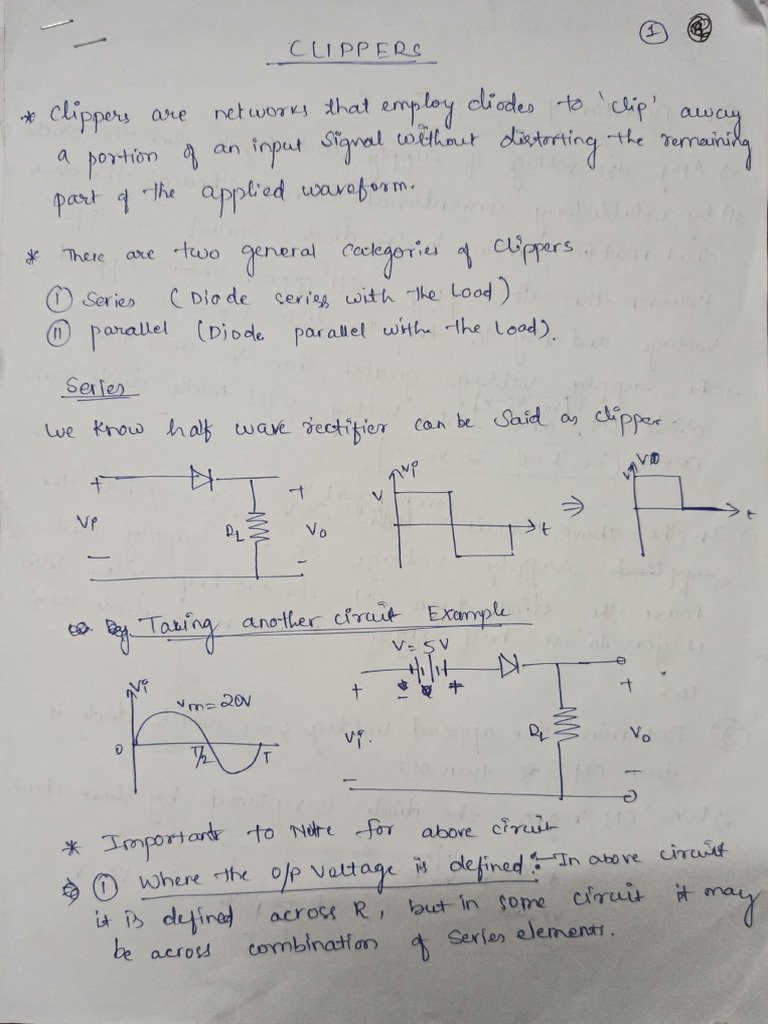 1
CLIPPERS
* Clippers are networks that employ diodes to 'clip' away
a portion of an input Signal without distorting the remaining
part of the applied waveform.
* There are two general categories of Clippers.
I Series (Diode series with the Load)
II parallel (Diode parallel with the load).
Series
We know half wave rectifier can be said as clipper.
+ Vi − RL + Vo −
Vi V t ⇒ Vo V t
Taking another circuit Example
Vi Vm=20V 0 T/2 T
V=5V − + + Vi. − RL + Vo −
* Important to Note for above circuit
I Where the O/P Voltage is defined:- In above circuit
it is defined across R, but in some circuit it may
be across combination of series elements.